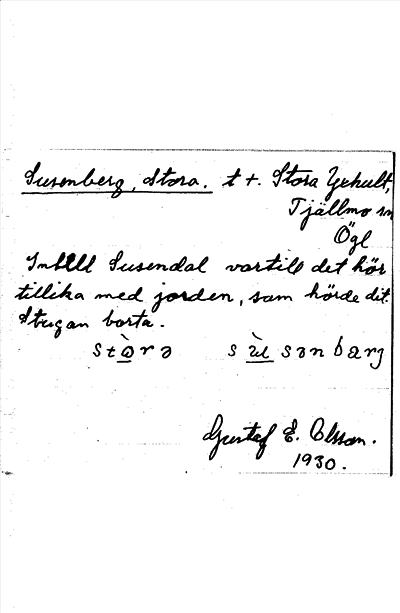 Susenberg, Stora. t +. Stora Yxhult,
Tjällmo sn
Ögl
Intill Susendal vartill det hör
tillika med jorden, som hörde dit.
Stugan borta.
stɷ̀rə sùsənbarj
Gustaf E. Olsson.
1930.